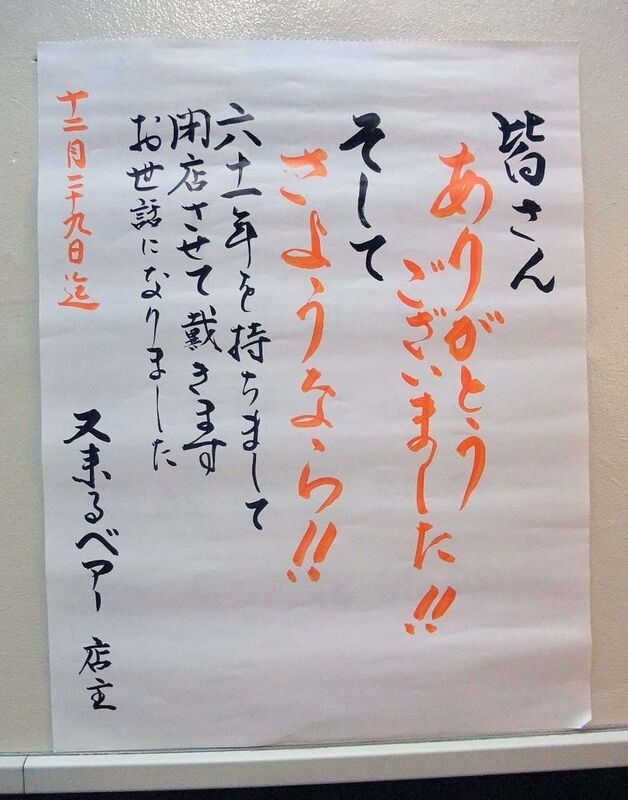 皆さん
ありがとう
ございました!!
そして
さようなら!!
六十一年を持ちまして
閉店させて戴きます
お世話になりました
十二月二十九日迄
又来るベアー 店主